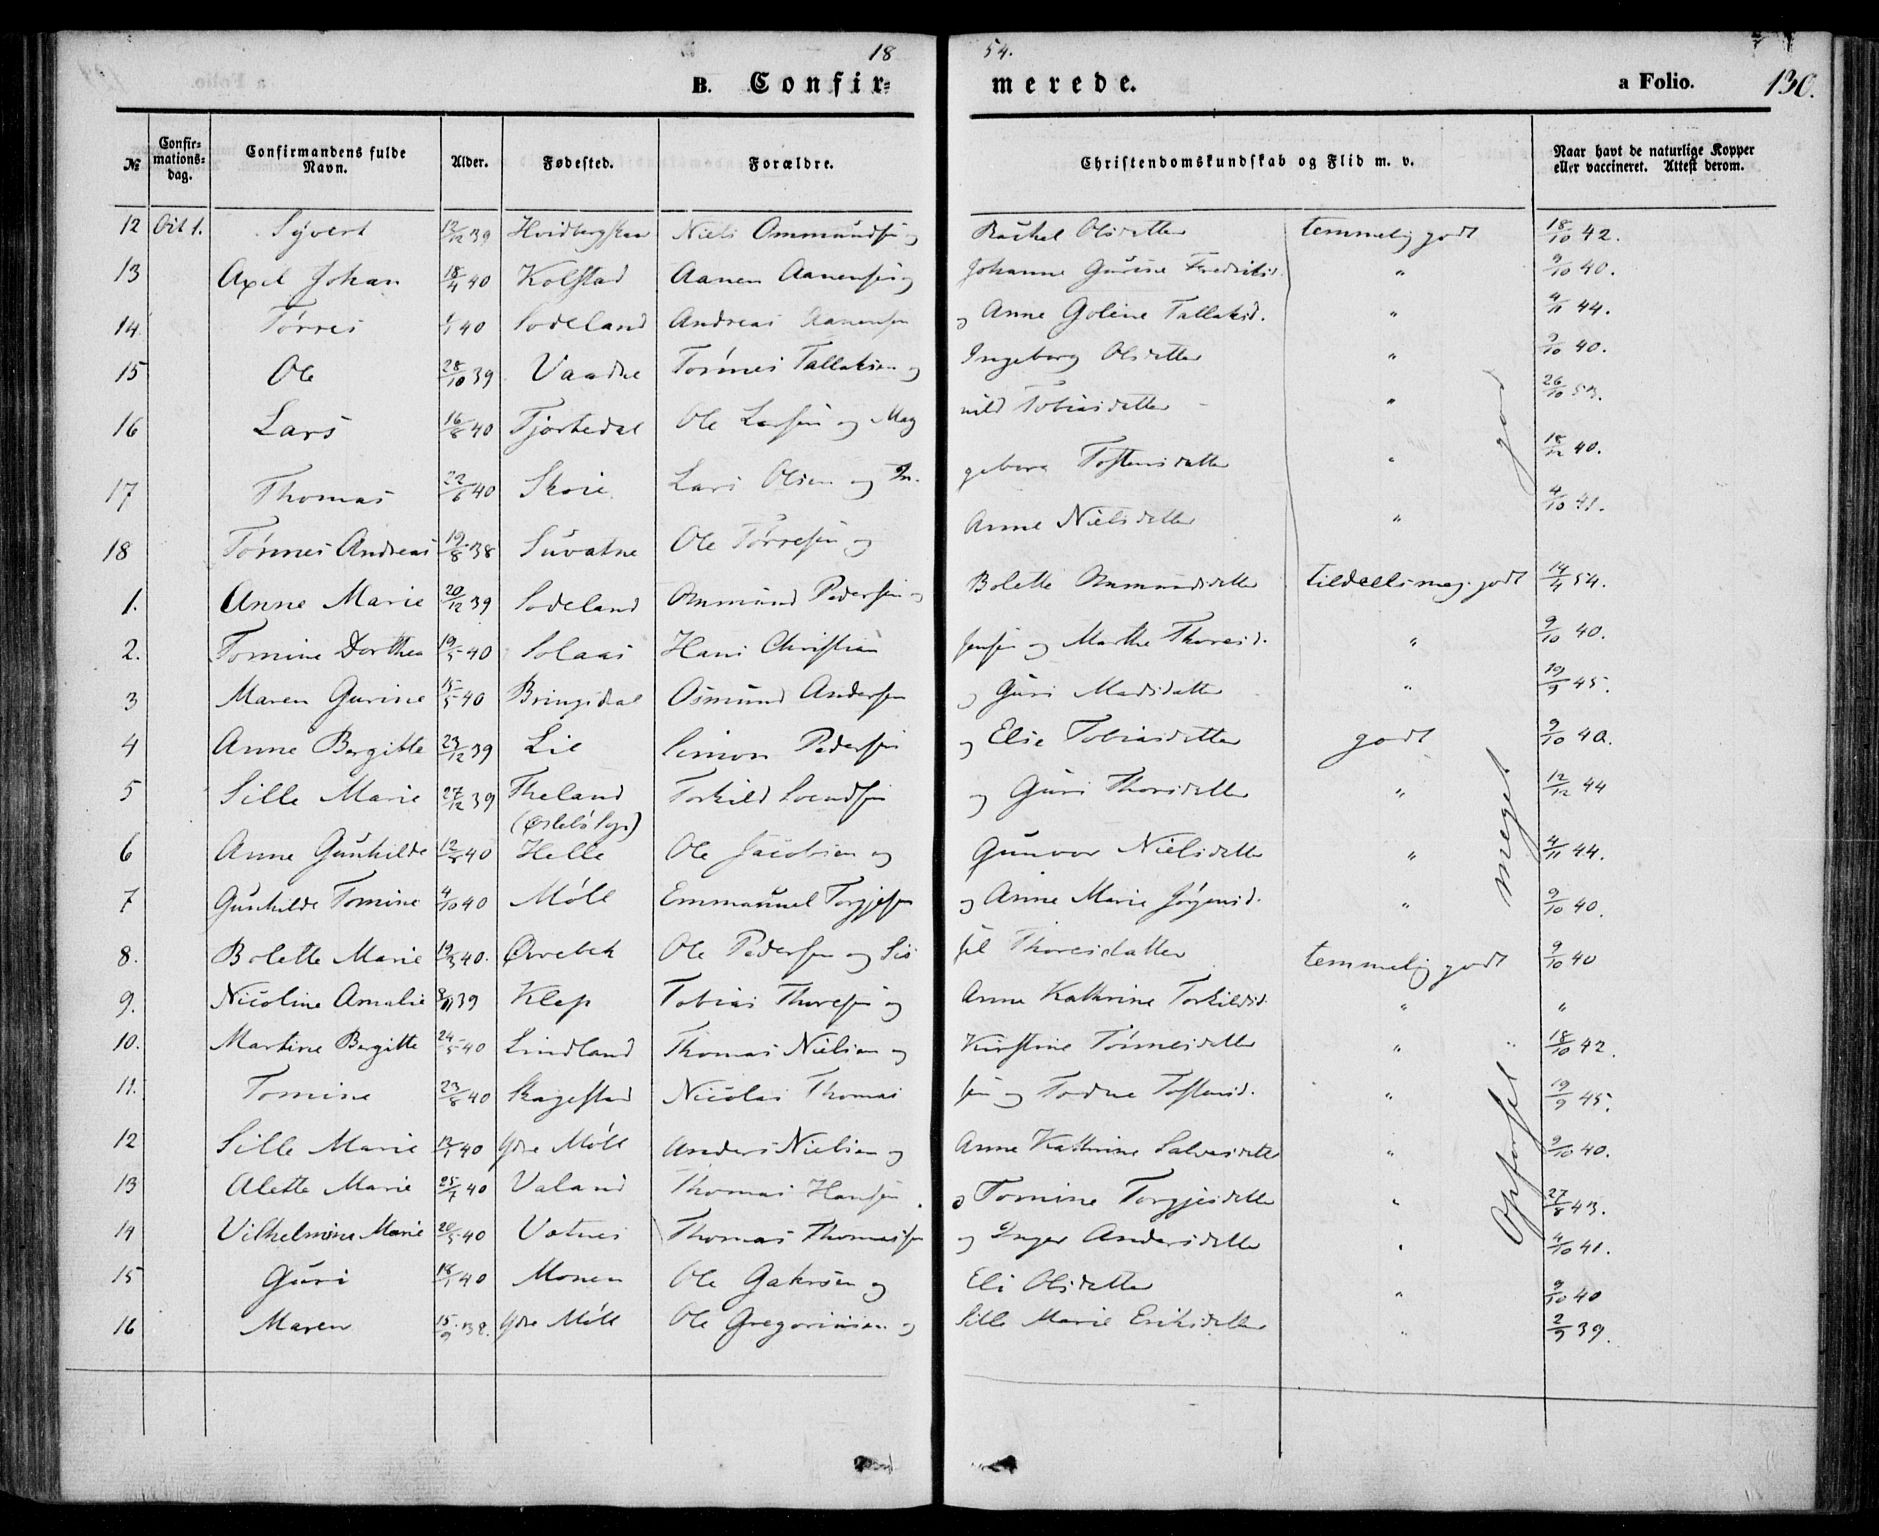 18 54.
B. Confir= merede. a Folio. 130.
№ Confir-mations-dag. Confirmandens fulde Navn. Alder. Fødested. Forældre. Christendomskundskab og Flid m. v. Naar havt de naturlige Kopper eller vaccineret. Attest derom.
12 Oct 1. Syvert 12/12 39 Niels Ommundsen og Rachel Olsdatter temmelig godt 18/10 42.
13 Axel Johan 18/4 40 Kolstad Aanen Aanensen og Johanne Gurine Fredriksd. " 9/10 40.
14. Tørres 1/1 40 Sodeland Andreas Aanensen og Anne Goline Tallaksd. " 4/11 44.
15 Ole 28/10 39 Vaadne Tønnes Tallaksen og Ingeborg Olsdatter " 9/10 40.
16 Lars 16/8 40 Tjortedal Ole Larsen og Mag nild Tobiasdatter " 26/10 53.
17 Thomas 22/6 40 Skoie Lars Olsen og In. geborg Tostensdatter " 18/12 40.
18 Tønnes Andreas 19/8 38 Suvatne Ole Tørresen og Anne Nielsdatter " 4/10 41.
1. Anne Marie 20/12 39 Sodeland Ommund Pedersen og Bolette Ommundsdatter tildeels meg. godt 14/4 54.
2. Tomine Dorthea 19/5 40 Solaas Hans Christian Jensen og Marthe Thoresd. " 9/10 40.
3 Maren Gurine 15/5 40 Bringsdal Osmund Andersen og Guri Madsdatter " 19/9 45.
4 Anne Bergitte 23/12 39 Lie Simon Pedersen og Elie Tobiasdatter godt 9/10 40.
5 Sille Marie 27/12 39 Theland Torkild Svendsen og Guri Thorsdatter " 12/12 44
6 Anne Gunhilde 12/5 40 Helle Ole Jacobsen og Gunvor Nielsdatter " 4/11 44.
7 Gunhilde Tomine 4/10 40 Möll Emmanuel Torgjesen og Anne Marie Jørgensd. " 9/10 40.
8. Bolette Marie 19/3 40. Øvrebek Ole Pedersen og Sis sel Thoresdatter temmelig godt 9/10 40
9. Nicoline Amalie 39 Klep Tobias Thoresen og Anne Kathrine Torkildsd. " "
10. Martine Bergitte 24/5 40 Lindland Thomas Nielsen og Kirstine Tønnesdatter " 18/10 42.
11. Tomine 23/8 40 Skagestad Nicolai Thomas sen og Todne Tostensd. " 19/9 45.
12 Sille Marie 13/1 40 Ydre Möll Anders Nielsen og Anne Kathrine Salvesdatter " 9/10 40.
13 Alette Marie 25/7 40 Valand Thomas Hansen og Tomine Torgjesdatter " 27/8 43.
14 Vilhelmine Marie 20/5 40 Vatnes Thomas Thomassen og Inger Andersdatter " 4/10 41.
15 Guri 18/1 40 Monen Ole Gabrsen og Eli Olsdatter " 9/10 40
16 Maren 15/9 38. Ydre Möll Ole Gregoriusen og Sille Marie Eriksdatter " 2/9 39.
god
meget
Opførsel